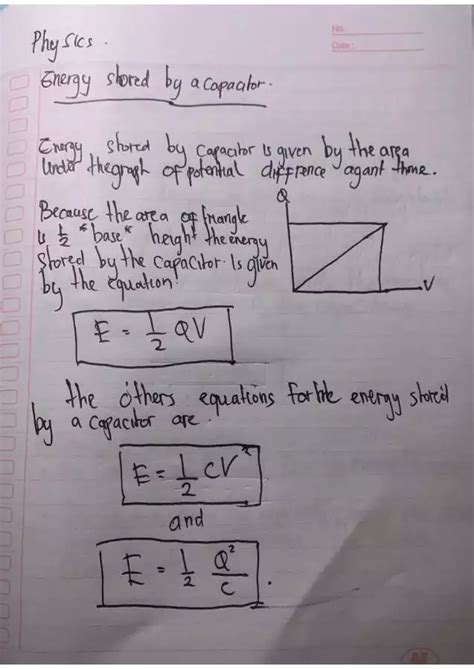 No.
Date:
Physics.
Energy stored by a capacitor.
Energy stored by capacitor is given by the area
under the graph of potential diffrence against time.
Q
Because the area of triangle
is 1/2 *base* height the energy
stored by the capacitor is given
by the equation:
V
E = 1/2 QV
the others equations for the energy stored
by a capacitor are.
E = 1/2 CV²
and
E = 1/2 Q²/C.